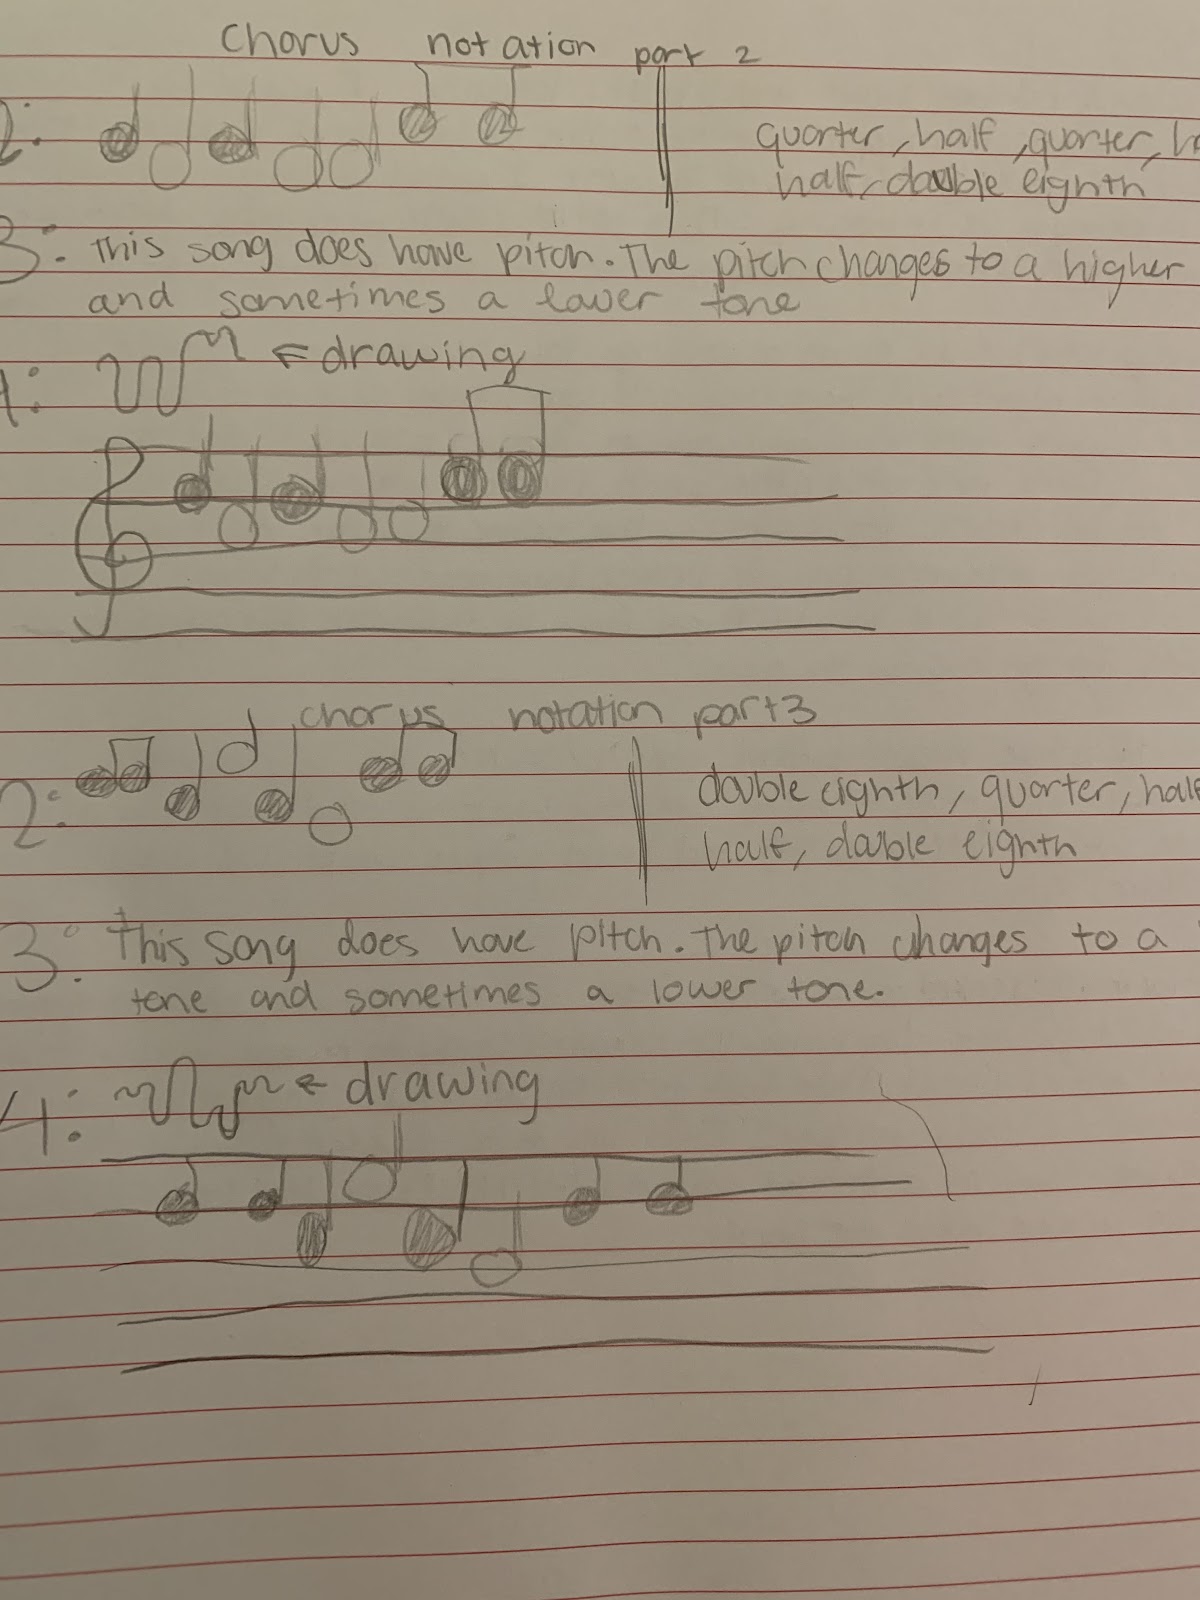 Chorus notation part 2
2: quarter, half, quarter,
half, double eighth
3: This song does have pitch. The pitch changes to a higher
and sometimes a lower tone
4: ← drawing
chorus notation part 3
2: double eighth, quarter, half
half, double eighth
3: This song does have pitch. The pitch changes to a
tone and sometimes a lower tone.
4: ← drawing